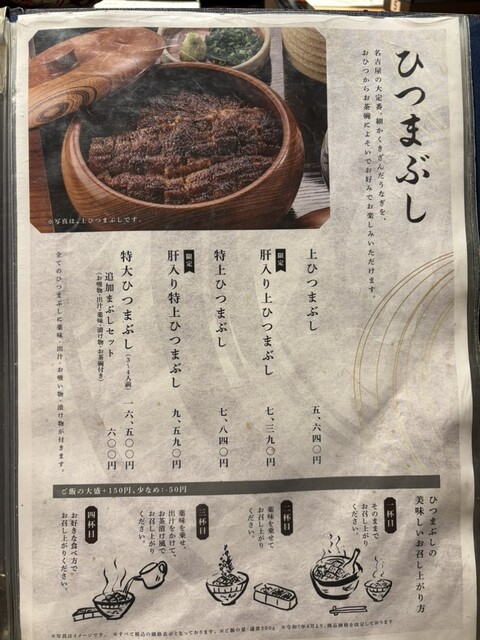 ひつまぶし
名古屋の大定番。細かくきざんだうなぎを、
おひつからお茶碗によそいでお好みでお楽しみいただけます。
※写真は、上ひつまぶしです。
上ひつまぶし 五、六四〇円
限定
肝入り上ひつまぶし 七、三九〇円
特上ひつまぶし 七、八四〇円
限定
肝入り特上ひつまぶし 九、五九〇円
特大ひつまぶし(3~4人前) 一六、五〇〇円
追加まぶしセット 六〇〇円
(お吸物・出汁・薬味・漬け物・お茶碗付き)
全てのひつまぶしに薬味・出汁・お吸い物・漬け物が付きます。
ご飯の大盛+150円、少なめ:-50円
ひつまぶしの
美味しいお召し上がり方
一杯目
そのままで、
お召し上がり
ください。
二杯目
薬味を乗せて
お召し上がり
ください。
三杯目
薬味を乗せ、
出汁をかけて、
お茶漬け風で
お召し上がり
ください。
四杯目
お好きな食べ方で
お召し上がりください。
※写真はイメージです。 ※すべて税込の価格表示となっております。 ※ご飯の量:通常200g ※令和7年4月より、商品価格を改定しております